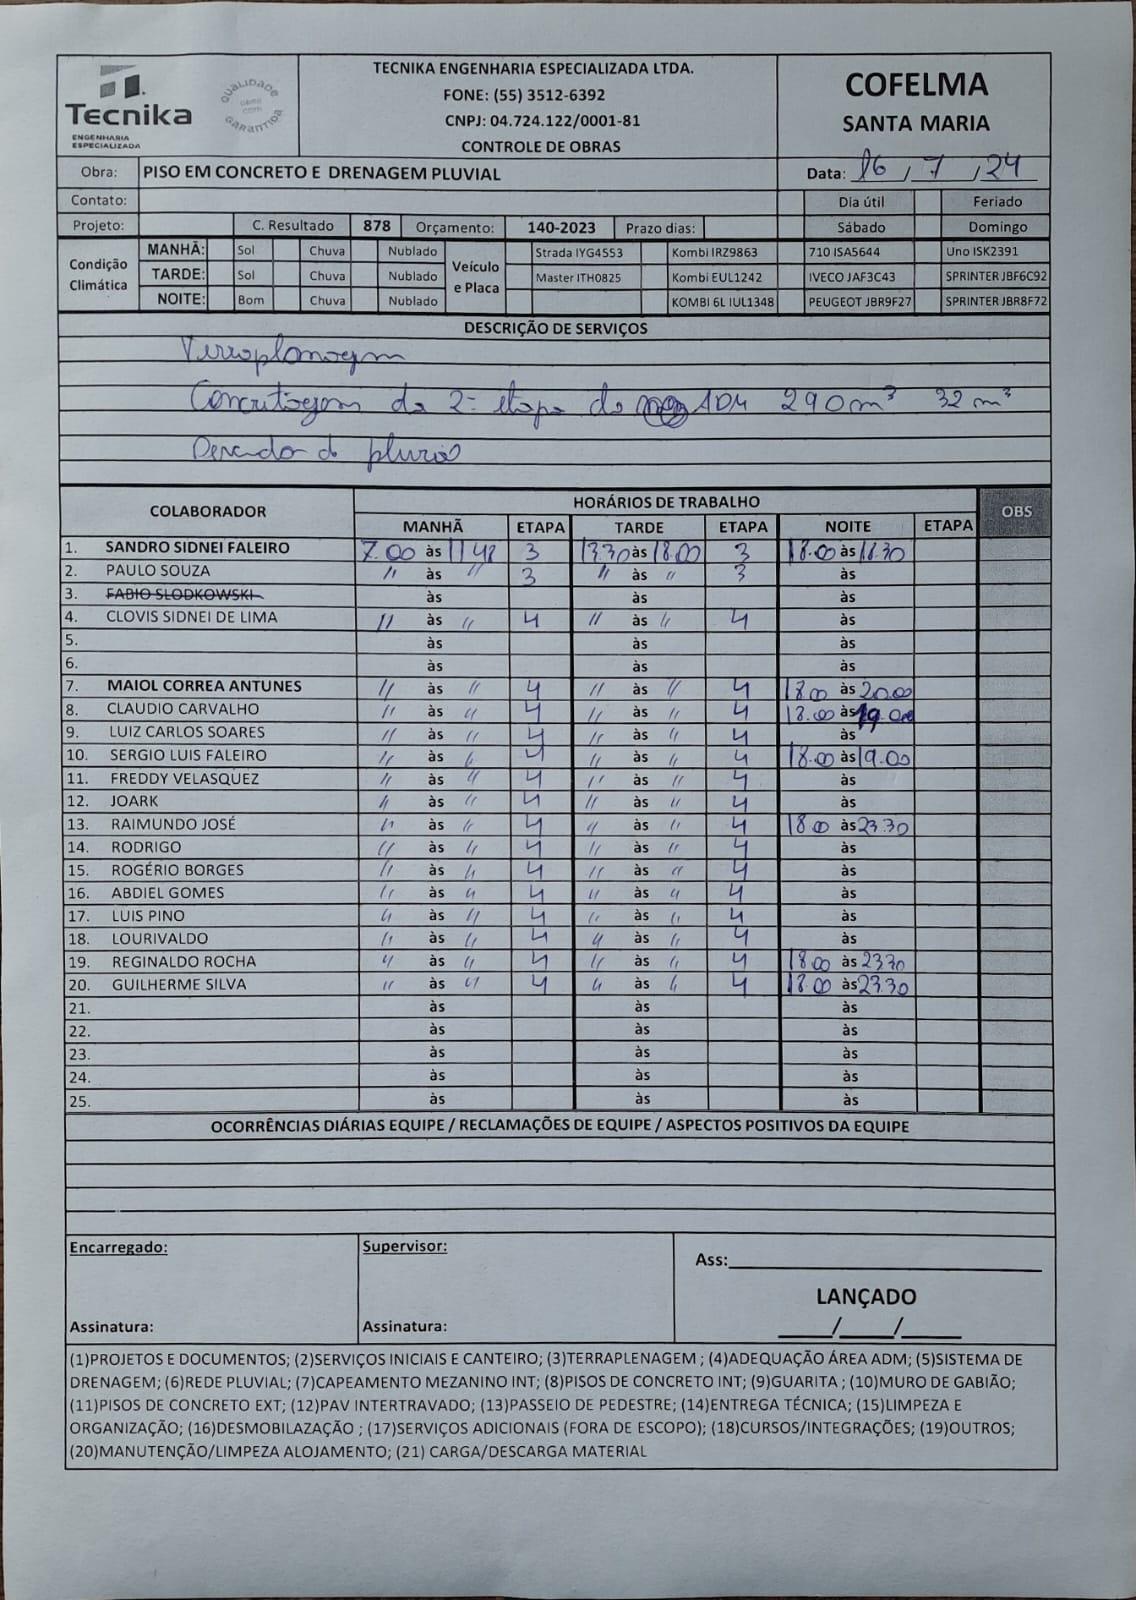 Tecnika
ENGENHARIA
ESPECIALIZADA
QUALIDADE
GARANTIDA
TECNIKA ENGENHARIA ESPECIALIZADA LTDA.
FONE: (55) 3512-6392
CNPJ: 04.724.122/0001-81
CONTROLE DE OBRAS
COFELMA
SANTA MARIA
Obra: PISO EM CONCRETO E DRENAGEM PLUVIAL Data: 16 / 7 / 24
Contato: Dia útil Feriado
Projeto: C. Resultado 878 Orçamento: 140-2023 Prazo dias: Sábado Domingo
Condição Climática
MANHÃ: Sol Chuva Nublado
TARDE: Sol Chuva Nublado
NOITE: Bom Chuva Nublado
Veículo e Placa
Strada IYG4553 Kombi IRZ9863 710 ISA5644 Uno ISK2391
Master ITH0825 Kombi EUL1242 IVECO JAF3C43 SPRINTER JBF6C92
KOMBI 6L IUL1348 PEUGEOT JBR9F27 SPRINTER JBR8F72
DESCRIÇÃO DE SERVIÇOS
Terraplanagem
Concretagem da 2ª etapa do ADM 290m² 32 m³
do pluvial
COLABORADOR HORÁRIOS DE TRABALHO OBS
MANHÃ ETAPA TARDE ETAPA NOITE ETAPA
1. SANDRO SIDNEI FALEIRO 7.00 às 11.48 3 13.30 às 18.00 3 18.00 às 18.30
2. PAULO SOUZA " às " 3 " às " 3 às
3. FABIO SLODKOWSKI às às às
4. CLOVIS SIDNEI DE LIMA " às " 4 " às " 4 às
5. às às às
6. às às às
7. MAIOL CORREA ANTUNES " às " 4 " às " 4 18.00 às 20.00
8. CLAUDIO CARVALHO " às " 4 " às " 4 18.00 às 19.00
9. LUIZ CARLOS SOARES " às " 4 " às " 4 às
10. SERGIO LUIS FALEIRO " às " 4 " às " 4 18.00 às 19.00
11. FREDDY VELASQUEZ " às " 4 " às " 4 às
12. JOARK " às " 4 " às " 4 às
13. RAIMUNDO JOSÉ " às " 4 " às " 4 18.00 às 23.30
14. RODRIGO " às " 4 " às " 4 às
15. ROGÉRIO BORGES " às " 4 " às " 4 às
16. ABDIEL GOMES " às " 4 " às " 4 às
17. LUIS PINO " às " 4 " às " 4 às
18. LOURIVALDO " às " 4 " às " 4 às
19. REGINALDO ROCHA " às " 4 " às " 4 18.00 às 23.30
20. GUILHERME SILVA " às " 4 " às " 4 18.00 às 23.30
21. às às às
22. às às às
23. às às às
24. às às às
25. às às às
OCORRÊNCIAS DIÁRIAS EQUIPE / RECLAMAÇÕES DE EQUIPE / ASPECTOS POSITIVOS DA EQUIPE
Encarregado: Supervisor: Ass:
LANÇADO
Assinatura: Assinatura: ___/___/___
(1)PROJETOS E DOCUMENTOS; (2)SERVIÇOS INICIAIS E CANTEIRO; (3)TERRAPLENAGEM ; (4)ADEQUAÇÃO ÁREA ADM; (5)SISTEMA DE
DRENAGEM; (6)REDE PLUVIAL; (7)CAPEAMENTO MEZANINO INT; (8)PISOS DE CONCRETO INT; (9)GUARITA ; (10)MURO DE GABIÃO;
(11)PISOS DE CONCRETO EXT; (12)PAV INTERTRAVADO; (13)PASSEIO DE PEDESTRE; (14)ENTREGA TÉCNICA; (15)LIMPEZA E
ORGANIZAÇÃO; (16)DESMOBILAZAÇÃO ; (17)SERVIÇOS ADICIONAIS (FORA DE ESCOPO); (18)CURSOS/INTEGRAÇÕES; (19)OUTROS;
(20)MANUTENÇÃO/LIMPEZA ALOJAMENTO; (21) CARGA/DESCARGA MATERIAL